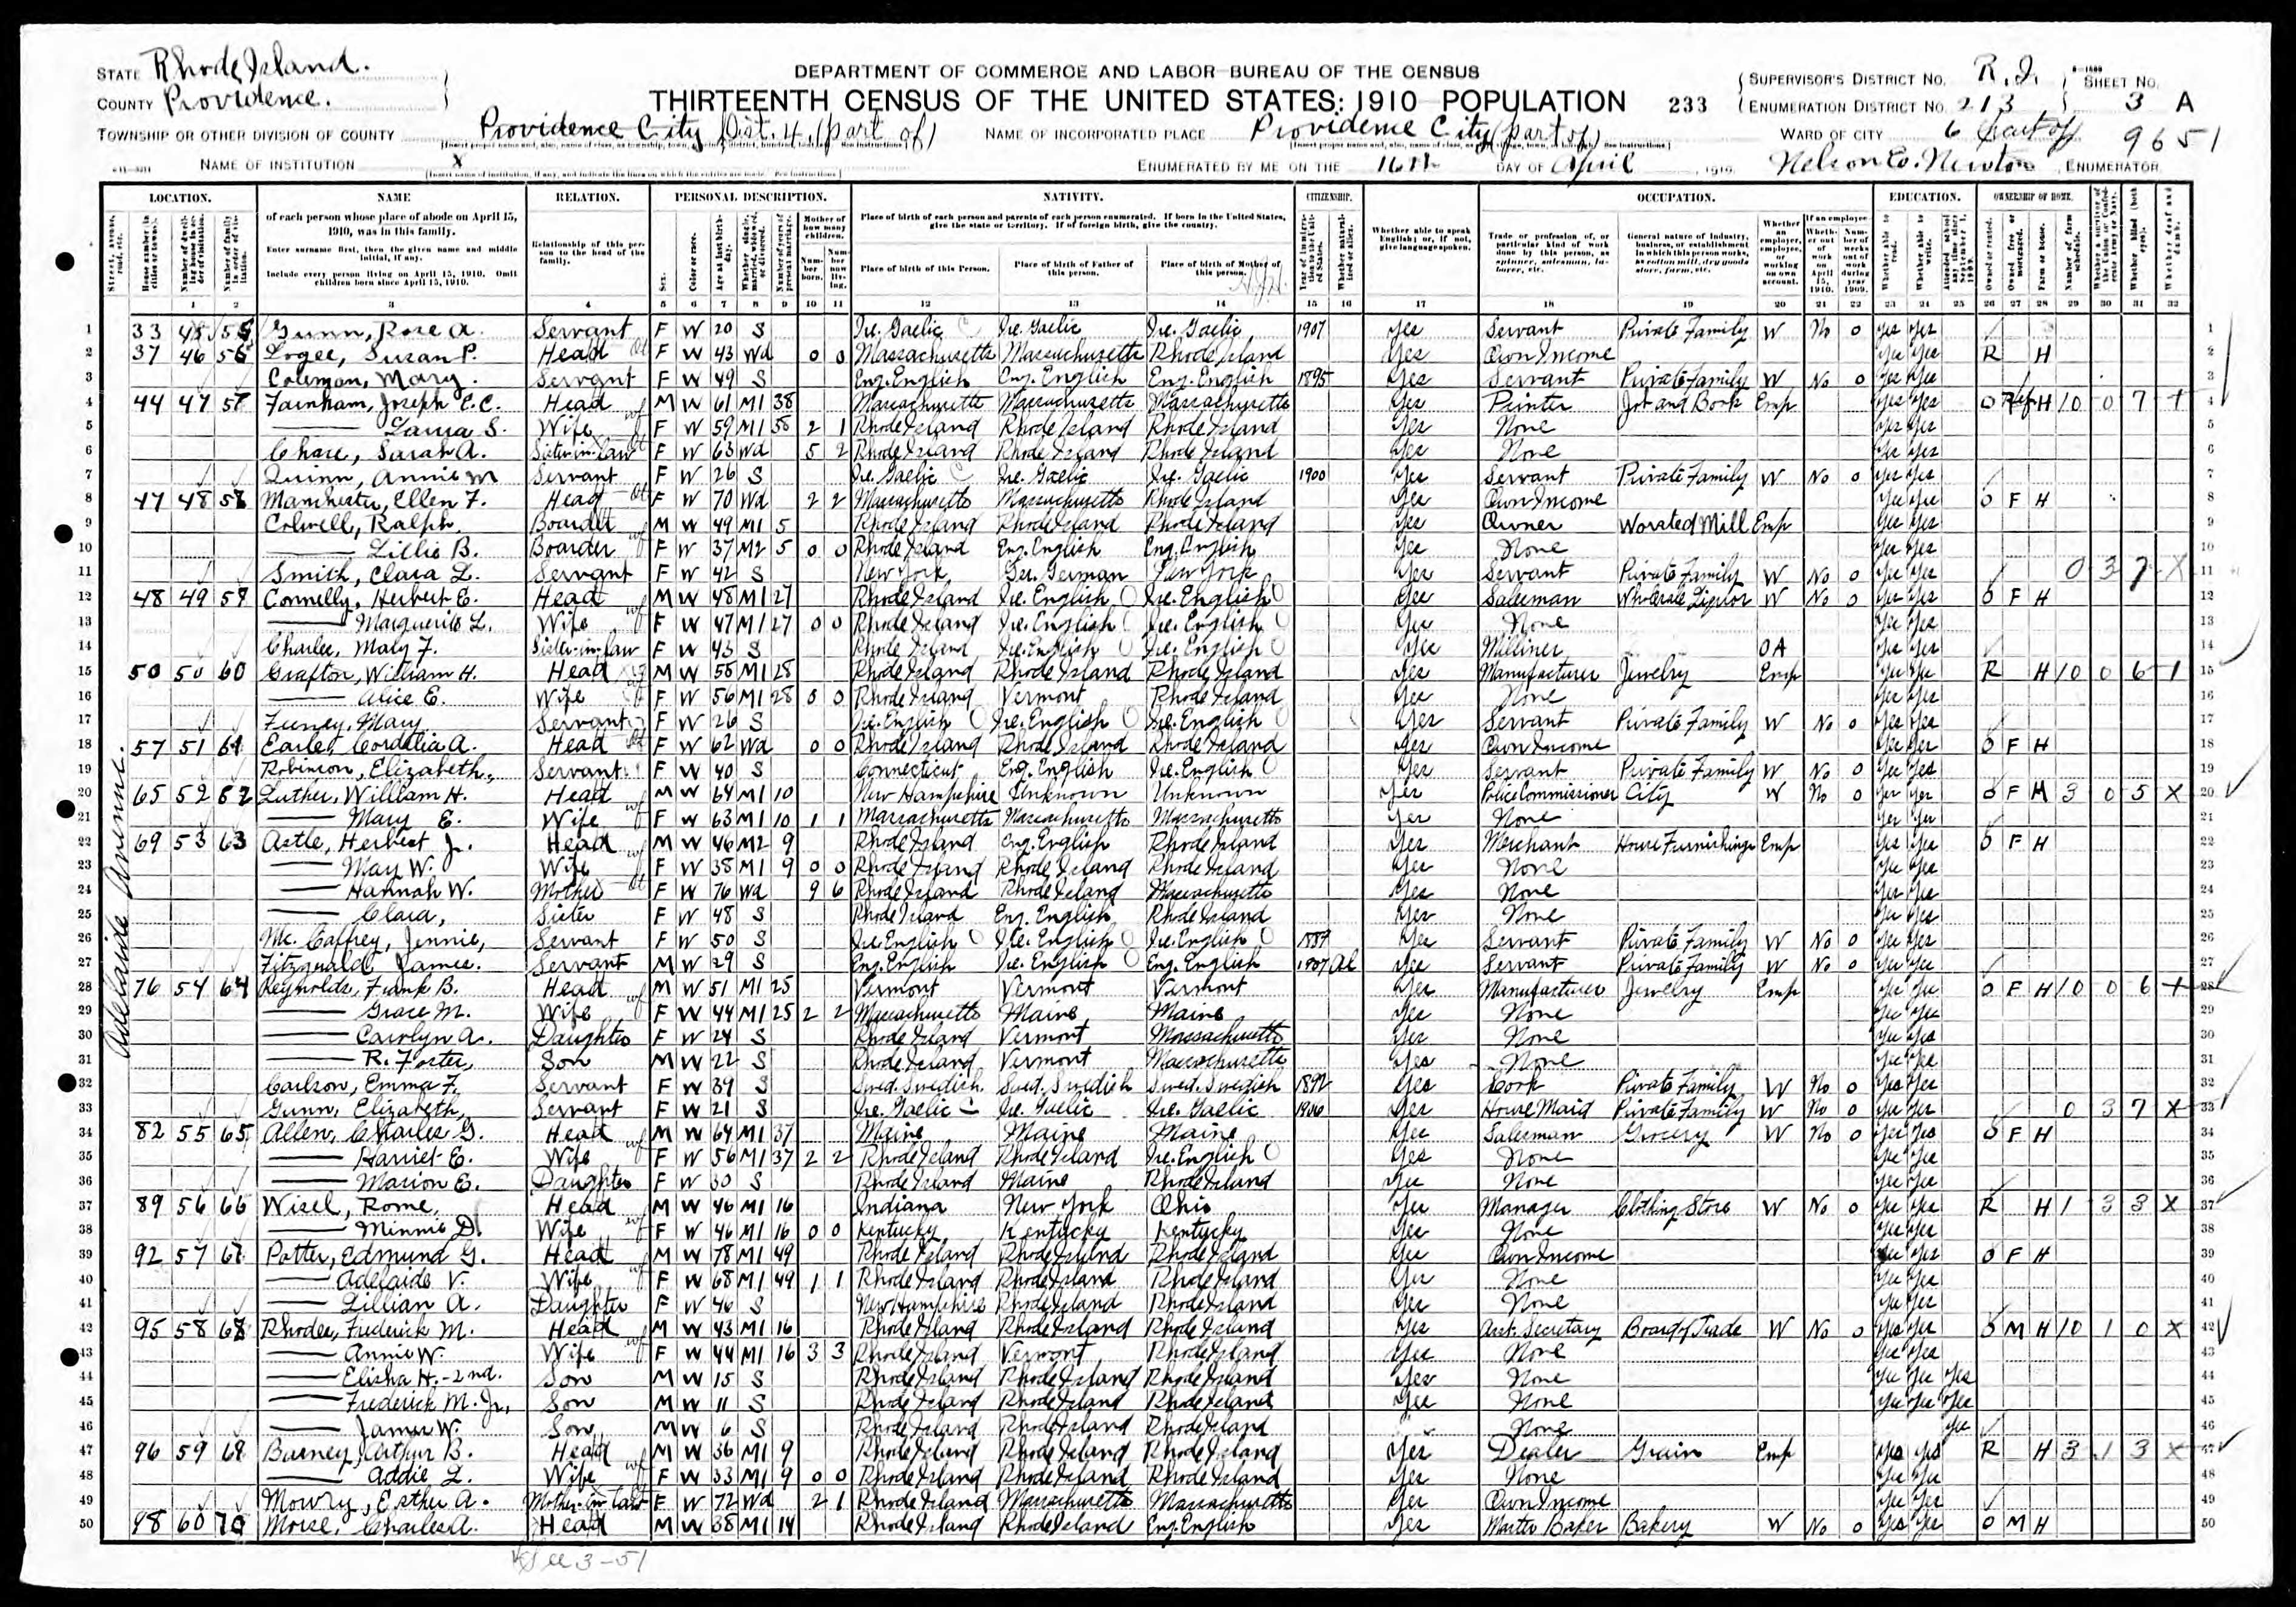 STATE Rhode Island.
COUNTY Providence.
TOWNSHIP OR OTHER DIVISION OF COUNTY Providence City Dist. 4, (part of)
NAME OF INSTITUTION X
DEPARTMENT OF COMMERCE AND LABOR—BUREAU OF THE CENSUS
THIRTEENTH CENSUS OF THE UNITED STATES: 1910 POPULATION
233
NAME OF INCORPORATED PLACE Providence City (part of)
ENUMERATED BY ME ON THE 16th DAY OF April, 1910.
SUPERVISOR'S DISTRICT No. R.I. SHEET No.
ENUMERATION DISTRICT No. 213 3 A
WARD OF CITY 6 part of 9651
Nelson E. Newton, ENUMERATOR.
LOCATION. NAME RELATION. PERSONAL DESCRIPTION. NATIVITY. CITIZENSHIP. OCCUPATION. EDUCATION. OWNERSHIP OF HOME.
of each person whose place of abode on April 15, 1910, was in this family.
Enter surname first, then the given name and middle initial, if any.
Include every person living on April 15, 1910. Omit children born since April 15, 1910.
Relationship of this person to the head of the family.
Place of birth of each person and parents of each person enumerated. If born in the United States, give the state or territory. If of foreign birth, give the country.
Place of birth of this Person. Place of birth of Father of this person. Place of birth of Mother of this person.
Whether able to speak English; or, if not, give language spoken.
1 2 3 4 5 6 7 8 9 10 11 12 13 14 15 16 17 18 19 20 21 22 23 24 25 26 27 28 29 30 31 32
Adelaide Avenue.
1 33 45 55 Gunn, Rose A. Servant F W 20 S Ire. Gaelic Ire. Gaelic Ire. Gaelic 1907 Yes Servant Private Family W No 0 Yes Yes 1
2 37 46 56 Logee, Susan P. Head F W 43 Wd 0 0 Massachusetts Massachusetts Rhode Island Yes Own Income Yes Yes R H 2
3 Coleman, Mary. Servant F W 49 S Eng. English Eng. English Eng. English 1895 Yes Servant Private Family W No 0 Yes Yes 3
4 44 47 57 Farnham, Joseph E.C. Head M W 61 M1 38 Massachusetts Massachusetts Massachusetts Yes Printer Job and Book Emp Yes Yes O H 10 0 7 4
5 —— Laura S. Wife F W 59 M1 38 2 1 Rhode Island Rhode Island Rhode Island Yes None Yes Yes 5
6 Chase, Sarah A. Sister-in-law F W 63 Wd 5 2 Rhode Island Rhode Island Rhode Island Yes None Yes Yes 6
7 Quinn, Annie M Servant F W 26 S Ire. Gaelic Ire. Gaelic Ire. Gaelic 1900 Yes Servant Private Family W No 0 Yes Yes 7
8 47 48 58 Manchester, Ellen F. Head F W 70 Wd 2 2 Massachusetts Massachusetts Rhode Island Yes Own Income Yes Yes O F H 8
9 Colwell, Ralph, Boarder M W 49 M1 5 Rhode Island Rhode Island Rhode Island Yes Owner Worsted Mill Emp Yes Yes 9
10 —— Lillie B. Boarder F W 37 M2 5 0 0 Rhode Island Eng. English Eng. English Yes None Yes Yes 10
11 Smith, Clara L. Servant F W 42 S New York, Ger. German New York Yes Servant Private Family W No 0 Yes Yes 0 3 7 X 11
12 48 49 59 Connelly, Herbert E. Head M W 48 M1 27 Rhode Island Ire. English Ire. English Yes Salesman Wholesale Liquor W No 0 Yes Yes O F H 12
13 —— Marguerite L. Wife F W 47 M1 27 0 0 Rhode Island Ire. English Ire. English Yes None Yes Yes 13
14 Charles, Mary F. Sister-in-law F W 43 S Rhode Island Ire. English Ire. English Yes Milliner OA Yes Yes 14
15 50 50 60 Grafton, William H. Head M W 55 M1 28 Rhode Island Rhode Island Rhode Island Yes Manufacturer Jewelry Emp Yes Yes R H 10 0 6 15
16 —— Alice E. Wife F W 56 M1 28 0 0 Rhode Island Vermont Rhode Island Yes None Yes Yes 16
17 Feeney, Mary Servant F W 26 S Ire. English Ire. English Ire. English Yes Servant Private Family W No 0 Yes Yes 17
18 57 51 61 Earle, Cordelia A. Head F W 62 Wd 0 0 Rhode Island Rhode Island Rhode Island Yes Own Income Yes Yes O F H 18
19 Robinson, Elizabeth, Servant F W 40 S Connecticut Eng. English Ire. English Yes Servant Private Family W No 0 Yes Yes 19
20 65 52 62 Luther, William H. Head M W 64 M1 10 New Hampshire Unknown Unknown Yes Police Commissioner City W No 0 Yes Yes O F H 3 0 5 X 20
21 —— Mary E. Wife F W 63 M1 10 1 1 Massachusetts Massachusetts Massachusetts Yes None Yes Yes 21
22 69 53 63 Astle, Herbert J. Head M W 46 M2 9 Rhode Island Eng. English Rhode Island Yes Merchant House Furnishings Emp Yes Yes O F H 22
23 —— May W. Wife F W 38 M1 9 0 0 Rhode Island Rhode Island Rhode Island Yes None Yes Yes 23
24 —— Hannah W. Mother F W 76 Wd 9 6 Rhode Island Rhode Island Massachusetts Yes None Yes Yes 24
25 —— Clara, Sister F W 48 S Rhode Island Eng. English Rhode Island Yes None Yes Yes 25
26 Mc. Caffrey, Jennie, Servant F W 50 S Ire. English Ire. English Ire. English 1889 Yes Servant Private Family W No 0 Yes Yes 26
27 Fitzgerald, James. Servant M W 29 S Eng. English Ire. English Eng. English 1907 Al Yes Servant Private Family W No 0 Yes Yes 27
28 76 54 64 Reynolds, Frank B. Head M W 51 M1 25 Vermont Vermont Vermont Yes Manufacturer Jewelry Emp Yes Yes O F H 10 0 6 28
29 —— Grace M. Wife F W 44 M1 25 2 2 Massachusetts Maine Maine Yes None Yes Yes 29
30 —— Carolyn A. Daughter F W 24 S Rhode Island Vermont Massachusetts Yes None Yes Yes 30
31 —— R. Foster, Son M W 22 S Rhode Island Vermont Massachusetts Yes None Yes Yes 31
32 Carlson, Emma F. Servant F W 39 S Swed. Swedish Swed. Swedish Swed. Swedish 1892 Yes Cook Private Family W No 0 Yes Yes 32
33 Gunn, Elizabeth, Servant F W 21 S Ire. Gaelic Ire. Gaelic Ire. Gaelic 1906 Yes House Maid Private Family W No 0 Yes Yes 0 3 7 X 33
34 82 55 65 Allen, Charles G. Head M W 64 M1 37 Maine Maine Maine Yes Salesman Grocery W No 0 Yes Yes O F H 34
35 —— Harriet E. Wife F W 56 M1 37 2 2 Rhode Island Rhode Island Ire. English Yes None Yes Yes 35
36 —— Marion E. Daughter F W 30 S Rhode Island Maine Rhode Island Yes None Yes Yes 36
37 89 56 66 Wisel, Rome, Head M W 46 M1 16 Indiana New York Ohio Yes Manager Clothing Store W No 0 Yes Yes R H 1 3 3 X 37
38 —— Minnie D. Wife F W 46 M1 16 0 0 Kentucky Kentucky Kentucky Yes None Yes Yes 38
39 92 57 67 Potter, Edmund G. Head M W 78 M1 49 Rhode Island Rhode Island Rhode Island Yes Own Income Yes Yes O F H 39
40 —— Adelaide V. Wife F W 68 M1 49 1 1 Rhode Island Rhode Island Rhode Island Yes None Yes Yes 40
41 —— Lillian A. Daughter F W 46 S New Hampshire Rhode Island Rhode Island Yes None Yes Yes 41
42 95 58 68 Rhodes, Frederick M. Head M W 43 M1 16 Rhode Island Rhode Island Rhode Island Yes Asst. Secretary Board of Trade W No 0 Yes Yes O M H 10 1 0 X 42
43 —— Annie W. Wife F W 44 M1 16 3 3 Rhode Island Vermont Rhode Island Yes None Yes Yes 43
44 —— Elisha H.-2nd. Son M W 15 S Rhode Island Rhode Island Rhode Island Yes None Yes Yes Yes 44
45 —— Frederick M. Jr., Son M W 11 S Rhode Island Rhode Island Rhode Island Yes None Yes Yes Yes 45
46 —— James W. Son M W 6 S Rhode Island Rhode Island Rhode Island None Yes 46
47 96 59 69 Barney, Arthur B. Head M W 36 M1 9 Rhode Island Rhode Island Rhode Island Yes Dealer Grain Emp Yes Yes R H 3 1 3 X 47
48 —— Addie L. Wife F W 33 M1 9 0 0 Rhode Island Rhode Island Rhode Island Yes None Yes Yes 48
49 Mowry, Esther A. Mother-in-law F W 72 Wd 2 1 Rhode Island Massachusetts Massachusetts Yes Own Income Yes Yes 49
50 98 60 70 Morse, Charles A. Head M W 38 M1 14 Rhode Island Rhode Island Eng. English Yes Master Baker Bakery W No 0 Yes Yes O M H 50
See 3-51